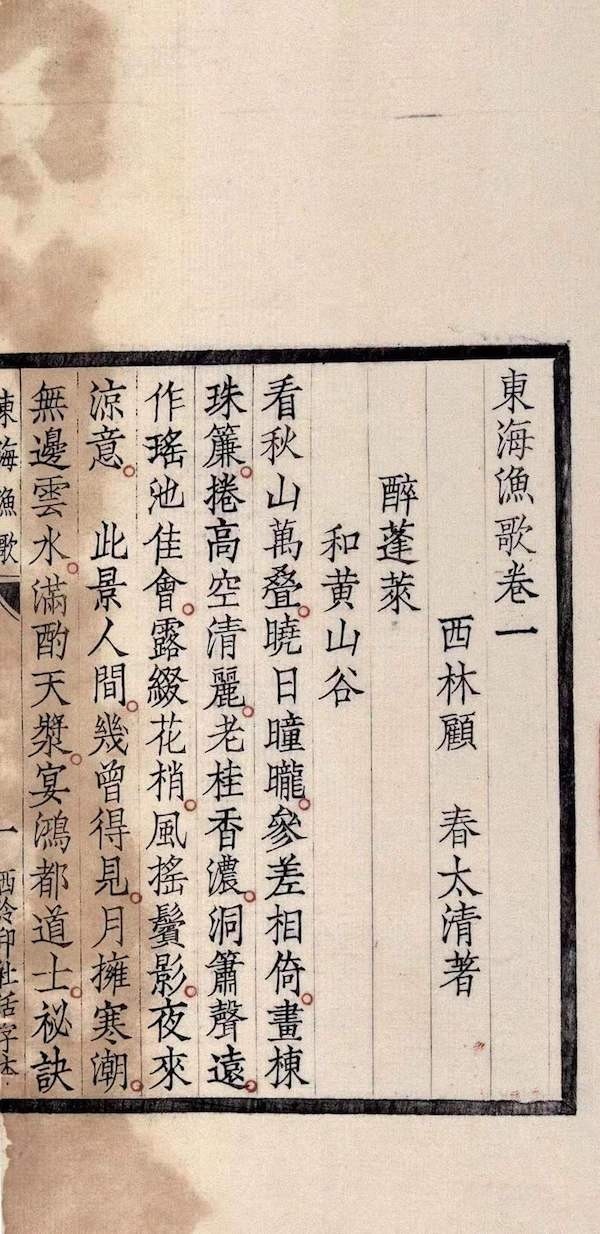 東海漁歌卷一
西林顧　春太清著
醉蓬萊
和黃山谷
看秋山萬疊曉日曈曨參差相倚畫棟
珠簾捲高空清麗老桂香濃洞簫聲遠
作瑤池佳會露綴花梢風搖鬢影夜來
涼意　此景人間幾曾得見月擁寒潮
無邊雲水滿酌天漿宴鴻都道士祕訣
東海漁歌
一
西泠印社活字本